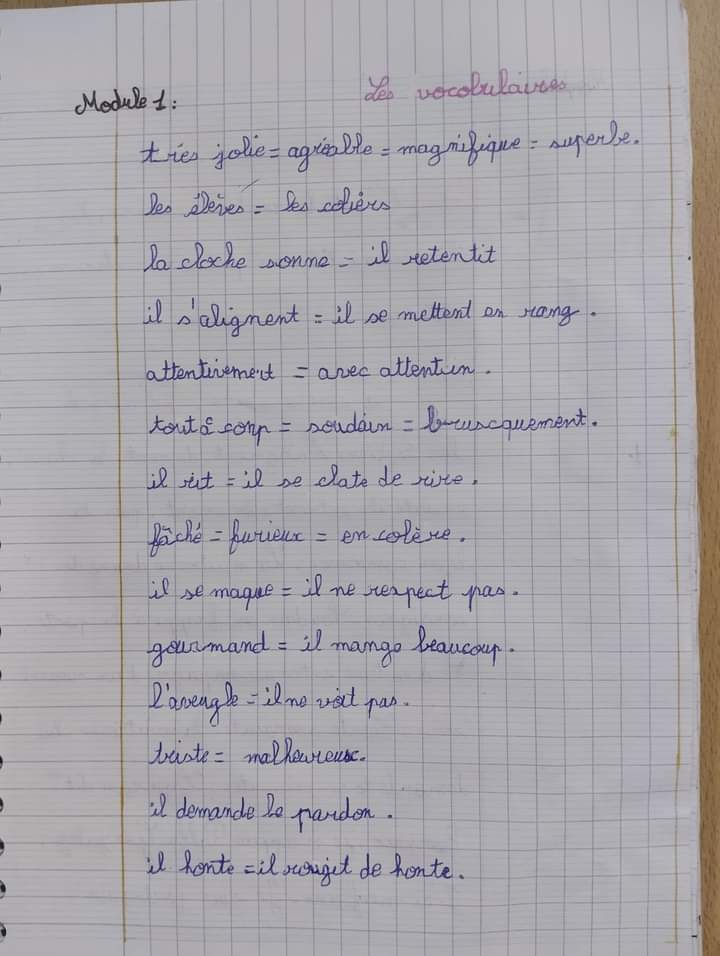 Module 1:
Les vocobulaires
tries jolie = agréable = magnifique = superbe.
les élèves = les coliérs
la cloche sonne = il retentit
il s'alignent = il se mettent en rang.
attentivement = avec attention.
tout à coup = soudain = bruscquement.
il rit = il se clate de rire.
fâché = furieux = en colère.
il se maque = il ne respect pas.
gourmand = il mange beaucoup.
l'aveugle = il ne voit pas.
triste = malheureux.
il demande le pardon.
il honte = il rougit de honte.